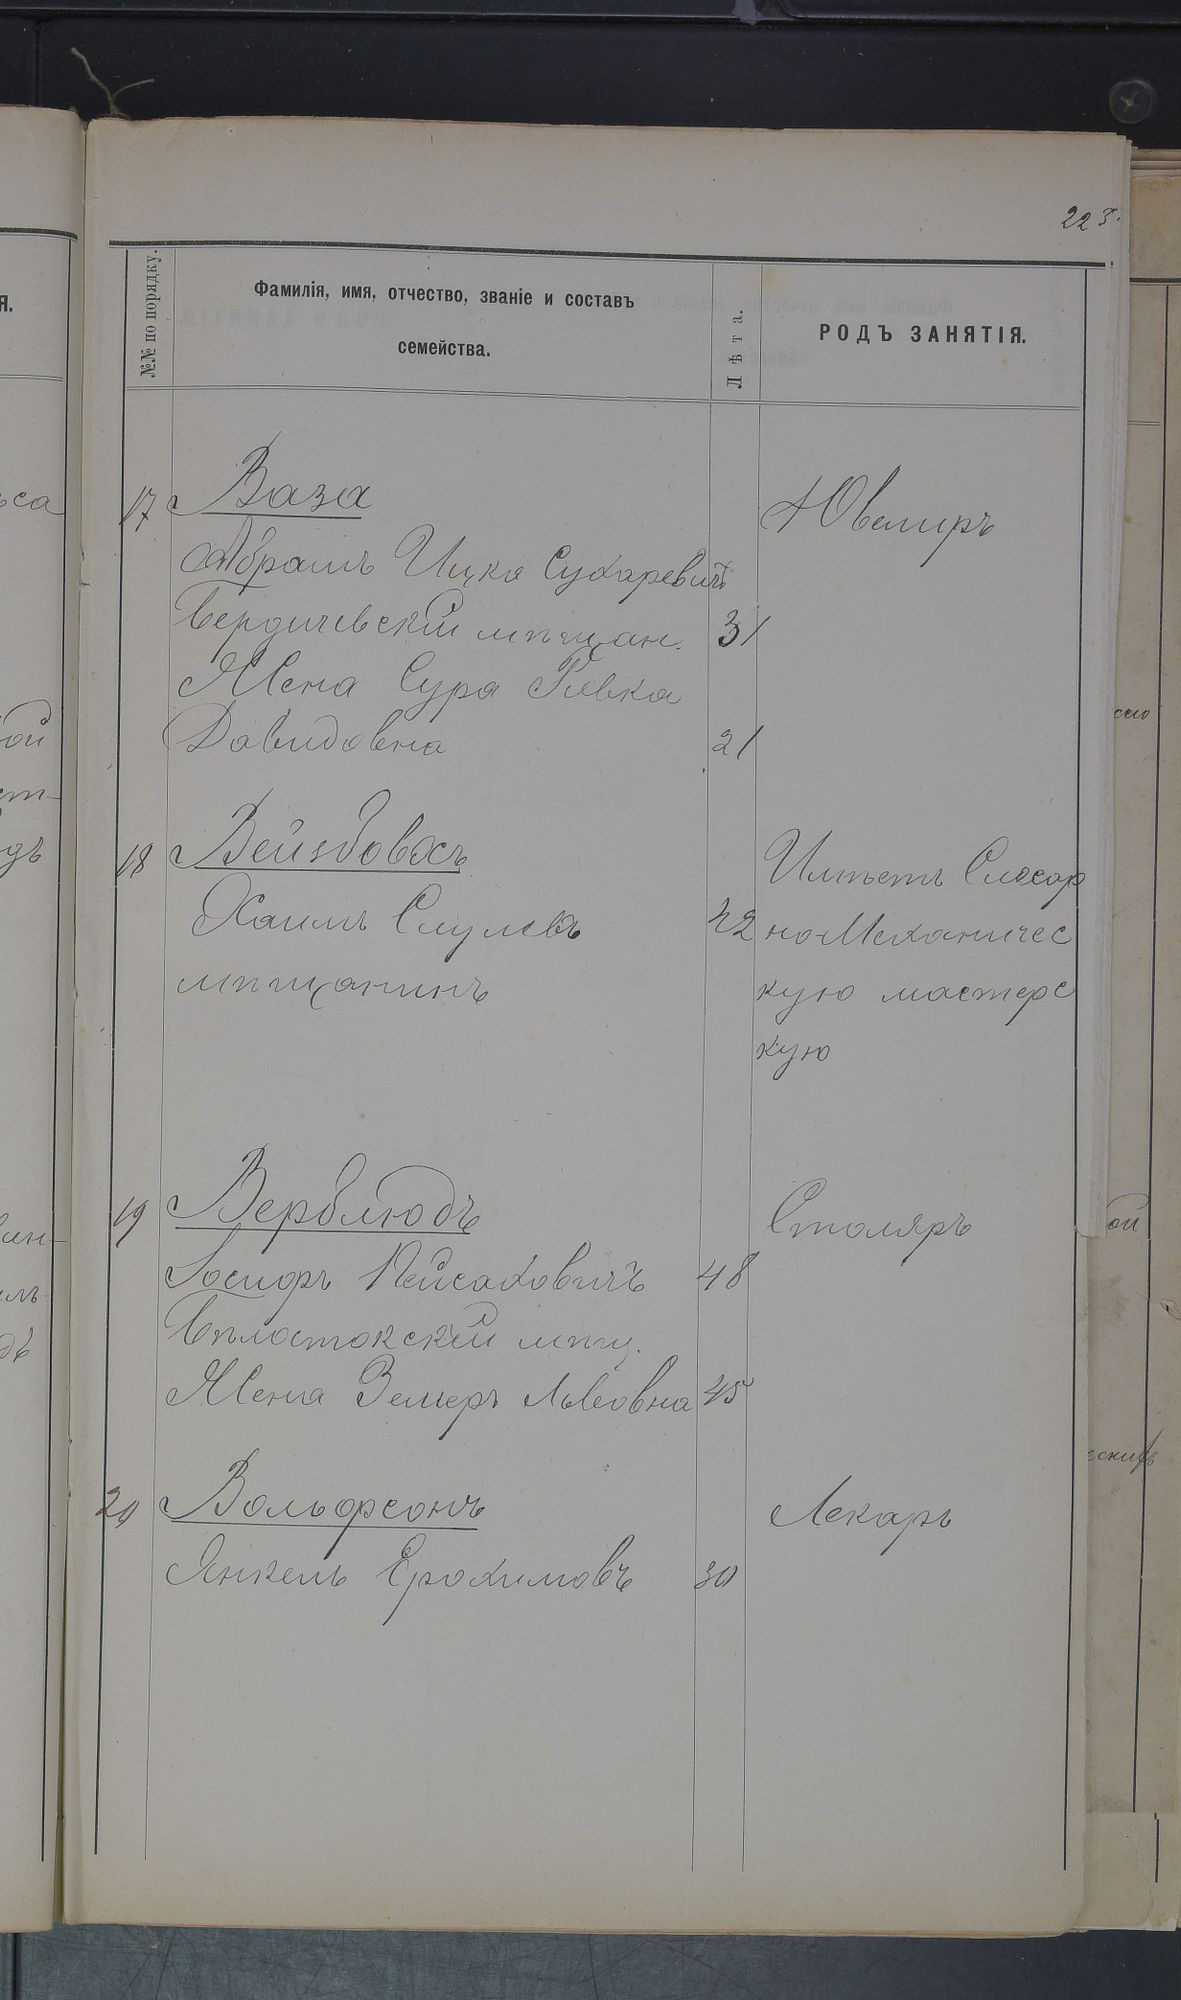 223
№№ по порядку.
Фамилія, имя, отчество, званіе и составъ
семейства.
Лѣта.
РОДЪ ЗАНЯТІЯ.
17 Ваза Ювелиръ
Абрамъ Ицка Сухаревичъ
Бердичевскій мѣщан. 31
Жена Сура Ривка
Давидовна 21
18 Вейзбовасъ Имѣетъ Слесар
Хаимъ 42 но-Механичес
мѣщанинъ кую мастерс
кую
19 Верблюдъ Столяръ
Іосифъ Пейсаховичъ 48
Бѣлостокскій мѣщ.
Жена Земеръ Львовна 45
20 Вольфсонъ Лекарь
Янкель Ерохимовъ 30